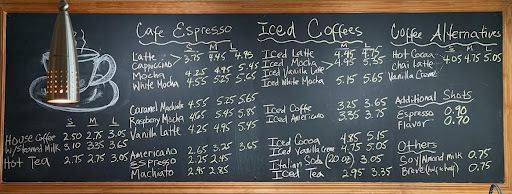 S M L
House Coffee 2.50 2.75 3.05
w/Steamed Milk 3.10 3.35 3.65
Hot Tea 2.75 2.75 3.05
Cafe Espresso
S M L
Latte 3.75 4.45 4.95
Cappuccino
Mocha 4.25 4.95 5.45
White Mocha 4.55 5.25 5.65
Caramel 4.55 5.25 5.65
Raspberry Mocha 4.65 5.45 5.85
Vanilla Latte 4.25 4.95 5.45
Americano 2.65 3.25 3.65
Espresso 2.25 2.45
Machiato 2.85
Iced Coffees
M L
Iced Latte 4.45 4.75
Iced Mocha 4.95 5.35
Iced Vanilla Latte
Iced White Mocha 5.15 5.65
Iced Coffee 3.25 3.65
Iced Americano 3.35 3.75
Iced Cocoa 4.85 5.15
Iced Vanilla Creme 4.75 5.05
Italian Soda (20 oz) 3.05
Iced Tea 2.95 3.35
Coffee Alternatives
S M L
Hot Cocoa 4.05 4.75 5.05
Chai Latte
Vanilla Creme
Additional Shots
Espresso 0.90
Flavor 0.70
Others
Soy/Almond milk 0.75
Breve (half & half) 0.75